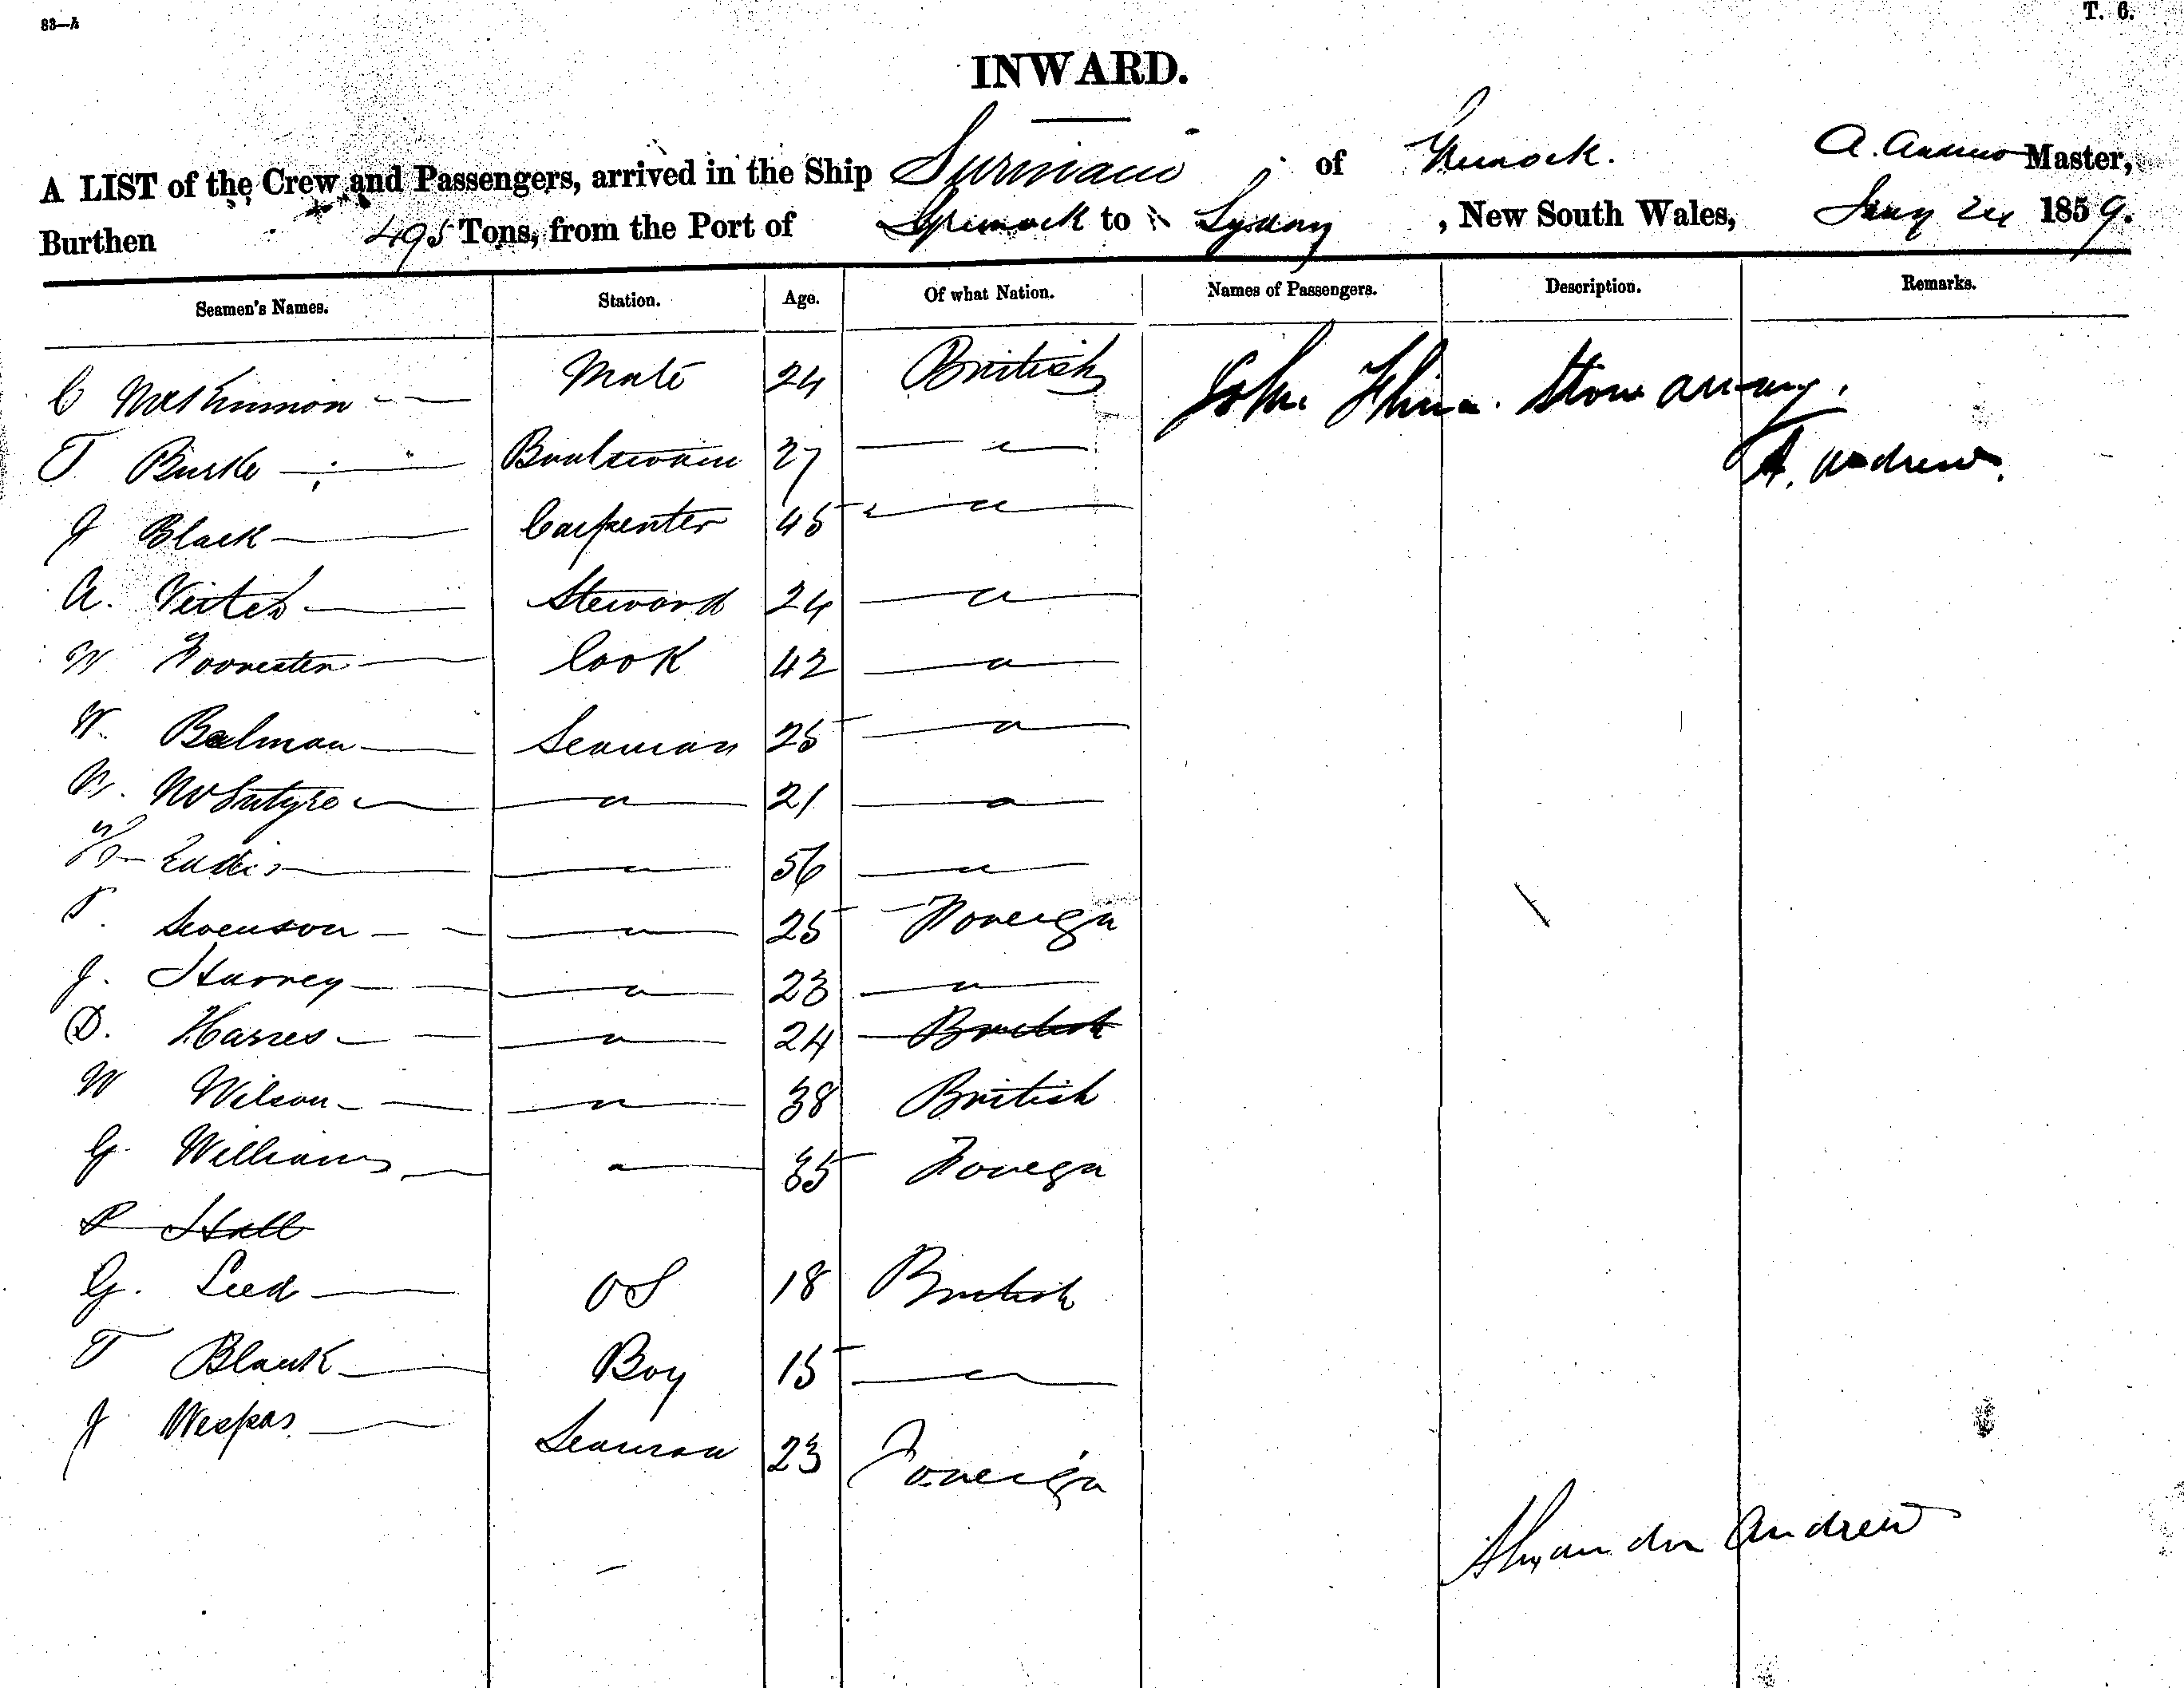 83—A
T. 6.
INWARD.
A LIST of the Crew and Passengers, arrived in the Ship Surinam of Greenock. A. Andrew Master,
Burthen 495 Tons, from the Port of Greenock to Sydney, New South Wales, Jany 24 1859.
Seamen's Names. Station. Age. Of what Nation. Names of Passengers. Description. Remarks.
C McKinnon Mate 24 British John Stow away.
T Burke Boatswain 27 " A. Andrew.
J Black Carpenter 45 "
A. Veitch Steward 24 "
W Forrester Cook 42 "
W. Balman Seaman 25 "
N. McIntyre " 21 "
" 56 "
P. Swenson " 25 Foreign
J. Harvey " 23 "
D. Harres " 24 British
W Wilson " 38 British
G Williams " 35 Foregn
P Hall
G. Leed OS 18 British
T Blank Boy 15 "
J Wespas Seaman 23 Foreign
Alexander Andrew